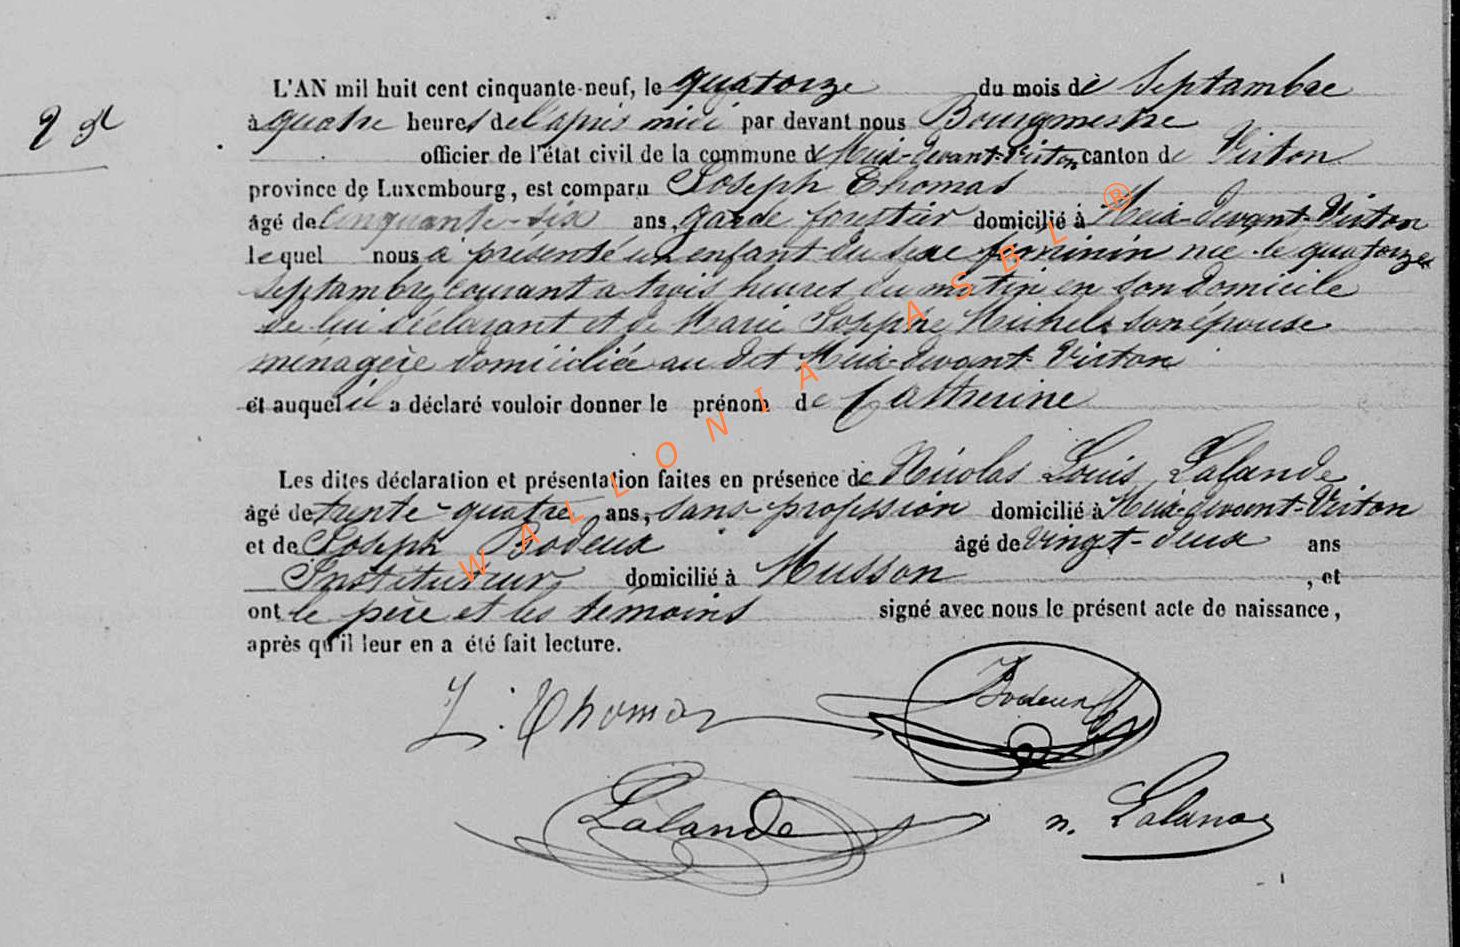 L'AN mil huit cent cinquante-neuf, le quatorze du mois de Septambre
à quatre heures de l'après midi par devant nous Bourgmestre
officier de l'état civil de la commune de Meix-devant-Virton canton de Virton
province de Luxembourg, est comparu Joseph Thomas
âgé de cinquante-six ans, garde forestier domicilié à Meix-devant-Virton
lequel nous a présenté un enfant du sexe féminin née le quatorze
Septambre courant a trois heures du matin en son domicile
de lui déclarant et de Marie Josephe Michel son épouse
menagère domiciliée au dit Meix-devant-Virton
et auquel il a déclaré vouloir donner le prénom de Catherine
Les dites déclaration et présentation faites en présence de Nicolas Louis Lalande
âgé de trente-quatre ans, sans profession domicilié à Meix-devant-Virton
et de Joseph Bodeux âgé de vingt-deux ans
Instituteur domicilié à Musson, et
ont le père et les témoins signé avec nous le présent acte de naissance,
après qu'il leur en a été fait lecture.
J. Thomas Bodeux
Lalande n. Lalande
WALLONIA ASBL ®